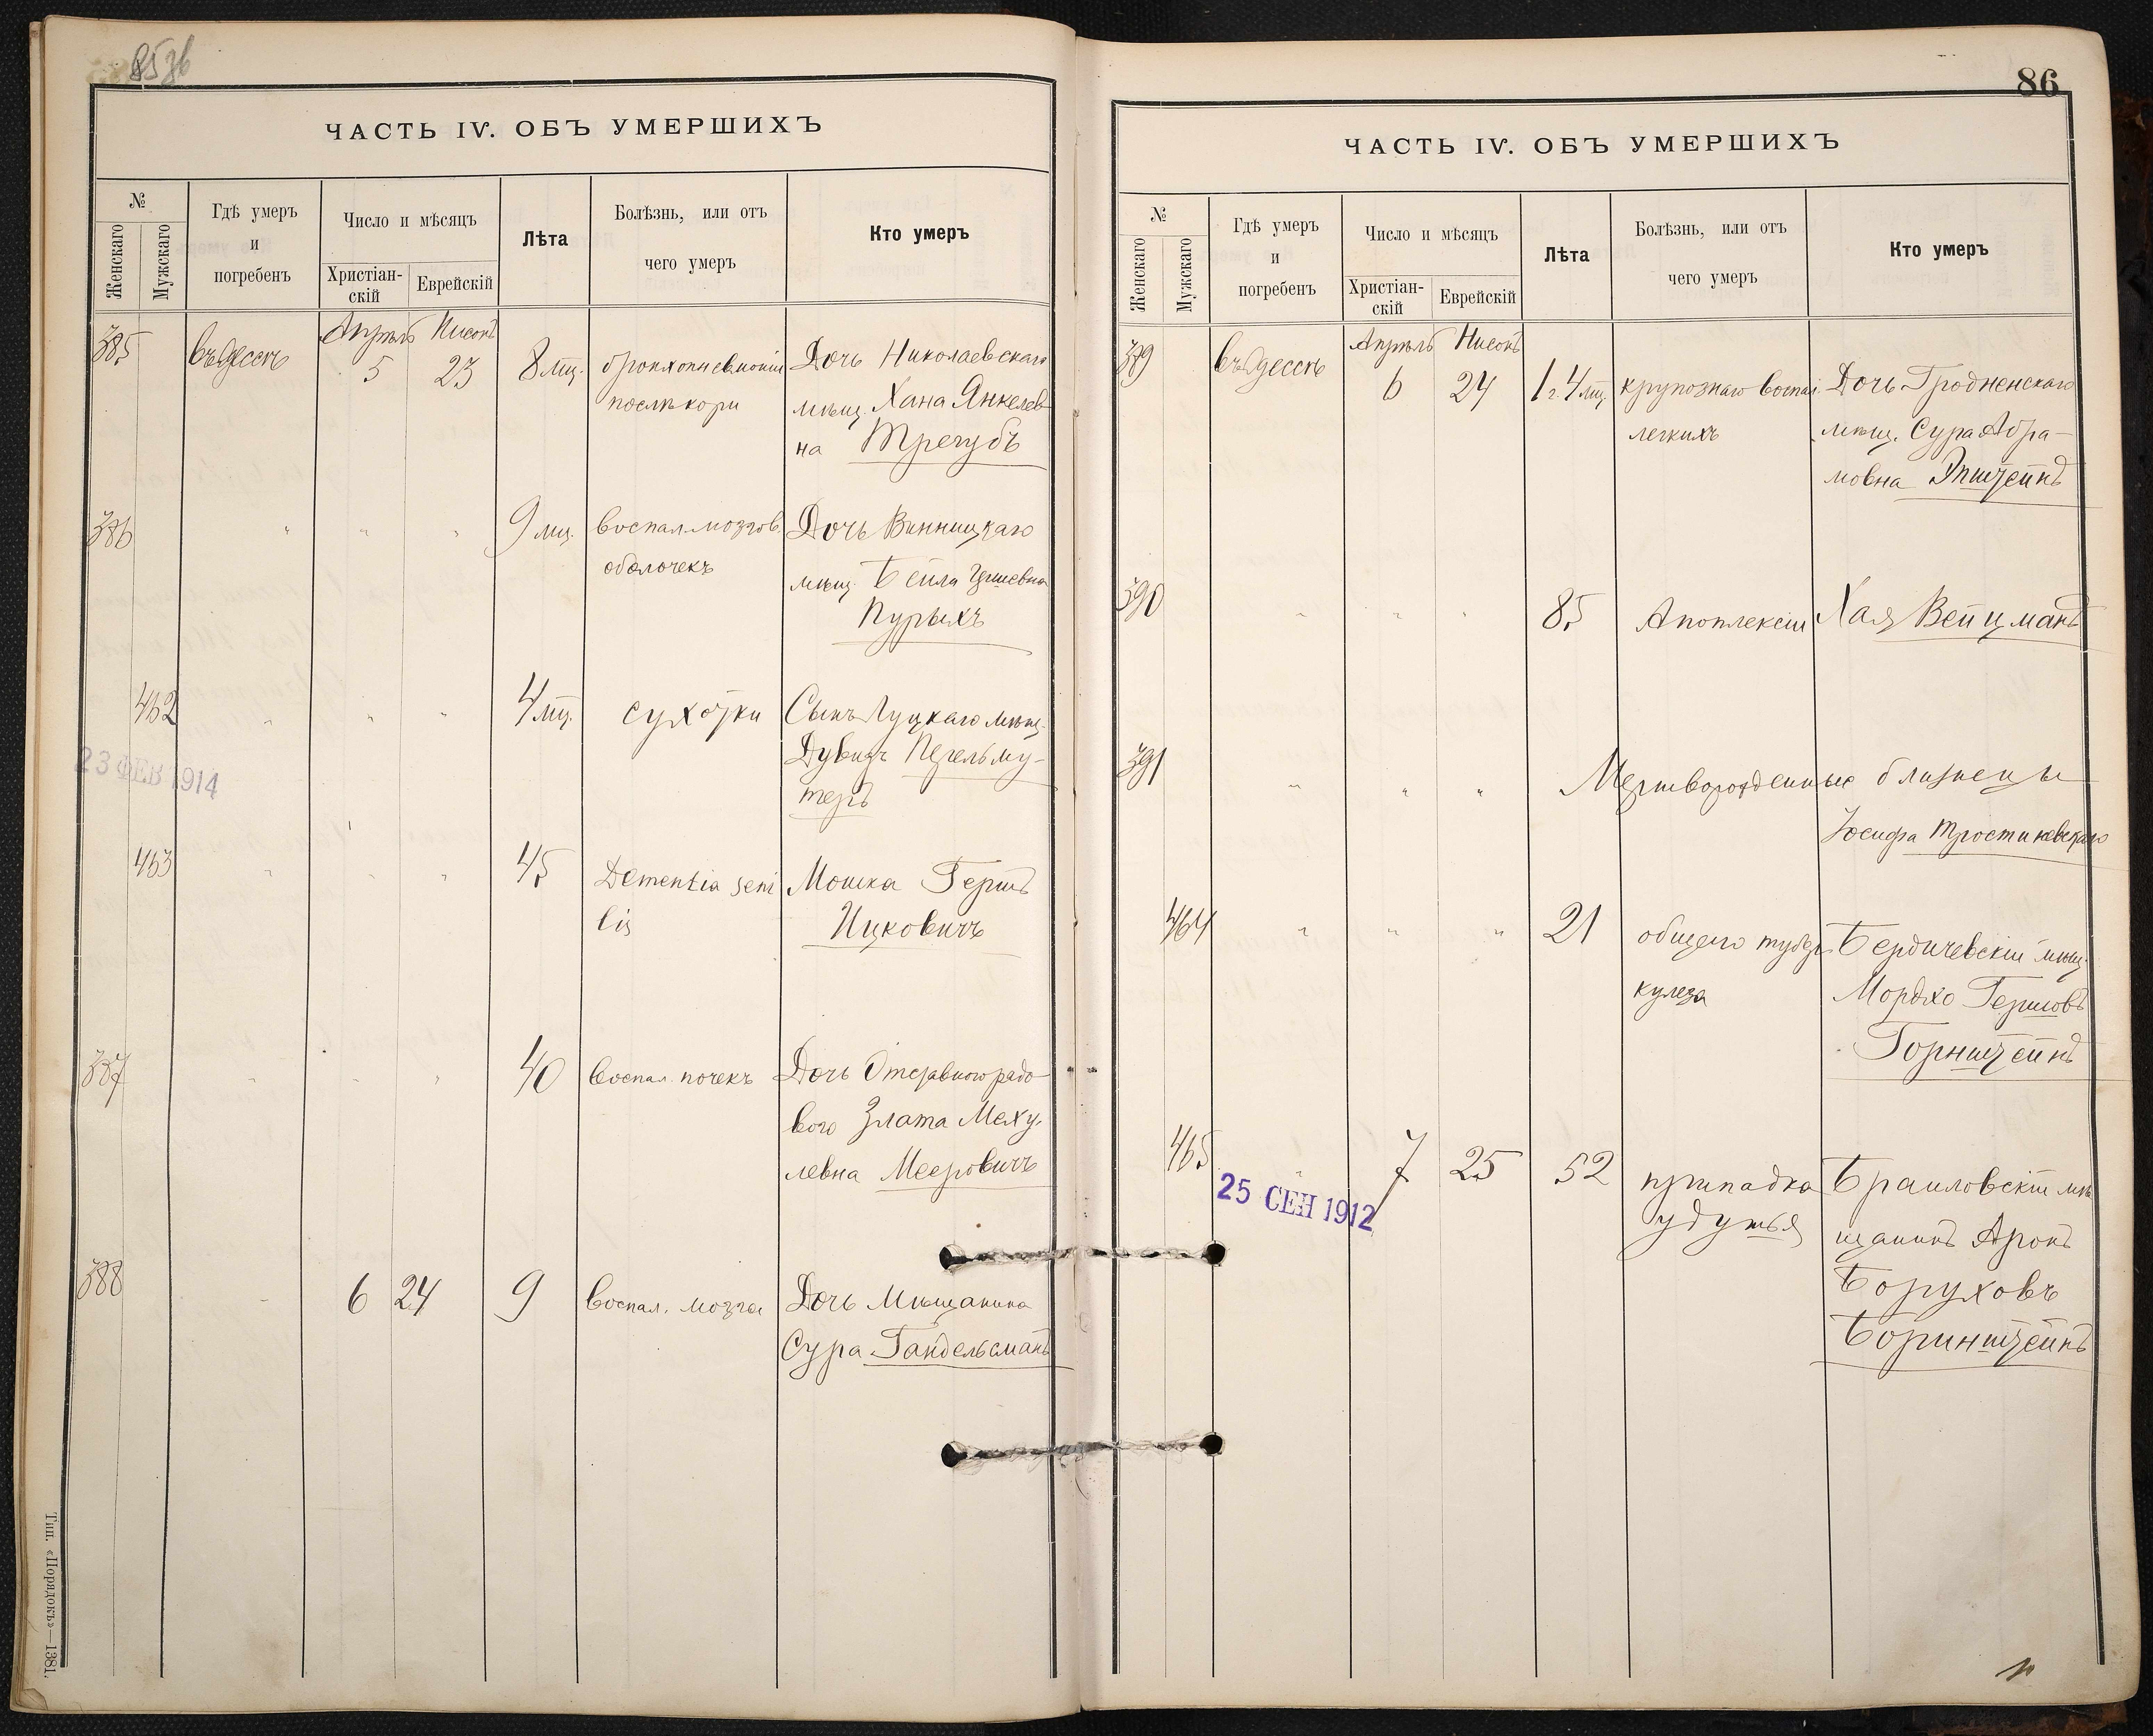 85 зв
ЧАСТЬ IV. ОБЪ УМЕРШИХЪ
№
Женскаго
Мужскаго
Гдѣ умеръ
и
погребенъ
Число и мѣсяцъ
Христіан-
скій
Еврейскій
Лѣта
Болѣзнь, или отъ
чего умеръ
Кто умеръ
385 въ Одессѣ Апрѣль 5 Нисонъ 23 8 мц. бронхопневмоніи Дочь Николаевскаго
послѣ кори мѣщ. Хана Янкелев-
на Трегубъ
386 " " " 9 мц. воспал. мозгов. Дочь Винницкаго
оболочекъ мѣщ. Бейла
Пурыхъ
462 " " " 4 мц. сухотки Сынъ Луцкаго мѣщ.
Дувидъ Пегельму-
теръ
23 ФЕВ 1914
463 " " " 45 Dementia seni Мошка Гершъ
lis Ицковичъ
387 " " " 40 воспал. почекъ Дочь Отставного рядо-
вого Злата Меху-
левна Мееровичъ
388 " 6 24 9 воспал. мозга Дочь Мѣщанина
Сура Гандельсманъ
Тип. «Порядокъ»—1381.
86
ЧАСТЬ IV. ОБЪ УМЕРШИХЪ
№
Женскаго
Мужскаго
Гдѣ умеръ
и
погребенъ
Число и мѣсяцъ
Христіан-
скій
Еврейскій
Лѣта
Болѣзнь, или отъ
чего умеръ
Кто умеръ
389 въ Одессѣ Апрѣль 6 Нисонъ 24 1 г. 4 мц. крупознаго воспал. Дочь Гродненскаго
легкихъ мѣщ. Сура Абра-
мовна Эпштейнъ
390 " " " 85 Апоплексіи Хая Вейцманъ
391 " " " Мертворожденные близнецы
Іосифа Тростиневскаго
464 " " " 21 общаго тубер Бердичевскій мѣщ.
кулеза Мордхо Гершовъ
Горнштейнъ
465 " 7 25 52 припадка Браиловскій мѣ
удушья щанинъ Аронъ
Боруховъ
Боринштейнъ
25 СЕН 1912